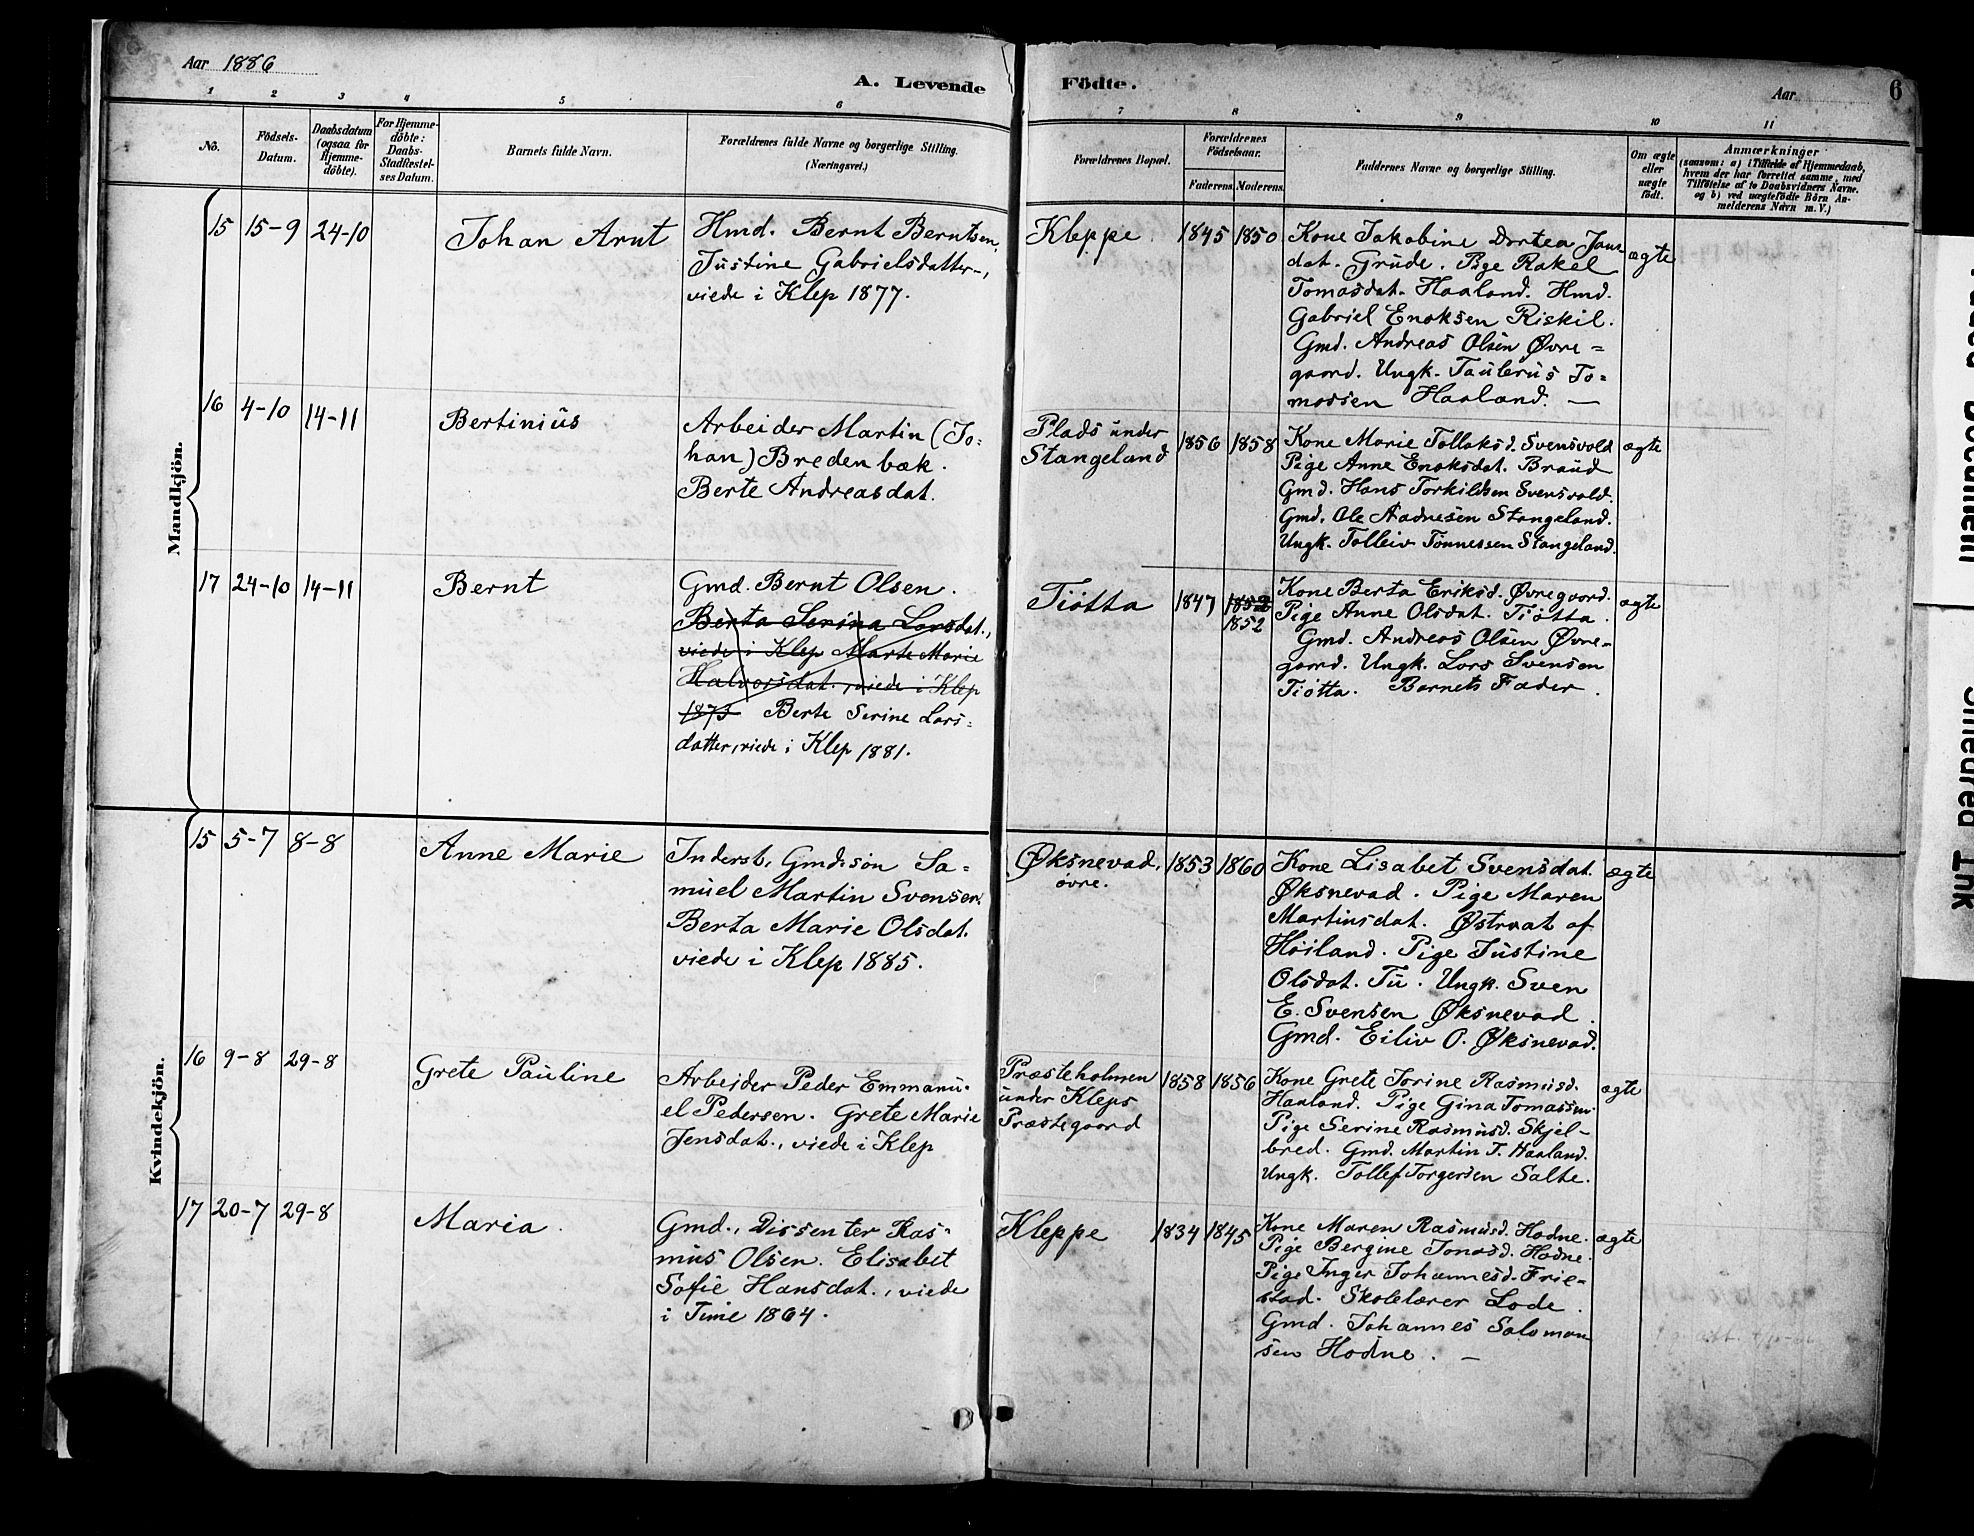 Aar 1886
A. Levende Födte.
Aar
6
1 2 3 4 5 6 7 8 9 10 11
No.
Födsels-
Datum.
Daabsdatum
(ogsaa for
Hjemme-
döbte).
For Hjemme-
döbte:
Daabs-
Stadfæstel-
ses Datum.
Barnets fulde Navn.
Forældrenes fulde Navne og borgerlige Stilling.
(Næringsvei.)
Forældrenes Bopæl.
Forældrenes
Födselsaar.
Faderens. Moderens.
Faddernes Navne og borgerlige Stilling.
Om ægte
eller
uægte
födt.
Anmærkninger
(saasom: a) i Tilfælde af Hjemmedaab,
hvem der har forrettet samme, med
Tilföielse af to Daabsvidners Navne.
og b) ved uægtefödte Börn An-
melderens Navn m.V.)
Mandkjön.
15 15-9 24-10
Johan Arnt
Hmd. Bernt Berntsen,
Justine Gabrielsdatter,
viede i Klep 1877.
Kleppe
1845 1850
Kone Jakobine Dortea Jans
dat. Grude. Pige Rakel
Tomasdat. Haaland. Hmd.
Gabriel Enoksen Riskil.
Gmd. Andreas Olsen Øvre=
gaard. Ungk. Taulerus To=
massen Haaland. —
ægte
16 4-10 14-11
Bertinius
Arbeider Martin (Jo=
han) Bredenbæk.
Berte Andreasdat.
Plads under
Stangeland
1856 1858
Kone Marie Tollaksd. Svensvold
Pige Anne Enoksdat. Braud
Gmd. Hans Torkildsen Svensvold.
Gmd. Ole Aadnesen Stangeland.
Ungk. Tolleiv Tønnessen Stangeland.
ægte
17 24-10 14-11
Bernt
Gmd. Bernt Olsen.
Berta Serina Larsdat.,
viede i Klep Marte Marie
Halvorsdat., viede i Klep
1875 Berte Serine Lars=
datter, viede i Klep 1881.
Tiøtta
1847
1852
Kone Berta Eriksd. Øvregaard.
Pige Anne Olsdat. Tiøtta.
Gmd. Andreas Olsen Øvre=
gaard. Ungk. Lars Svensen
Tiøtta. Barnets Fader.
ægte
Kvindekjön.
15 5-7 8-8
Anne Marie
Inderst, Gmdssøn Sa=
muel Martin Svensen.
Berta Marie Olsdat.
viede i Klep 1885.
Øksnevad,
øvre.
1853 1860
Kone Lisabet Svensdat.
Øksnevad. Pige Maren
Martinsdat. Østraat af
Høiland. Pige Justine
Olsdat. Tu. Ungk. Sven
E. Svensen Øksnevad.
Gmd. Eiliv O. Øksnevad.
ægte
16 9-8 29-8
Grete Pauline
Arbeider Peder Emmanu-
el Pedersen. Grete Marie
Jensdat., viede i Klep
Præsteholmen
under Kleps
Præstegaard
1858 1856
Kone Grete Torine Rasmusd.
Haaland. Pige Gina Tomassen.
Pige Serine Rasmusd. Skjel-
bred. Gmd. Martin T. Haaland.
Ungk. Tollef Torgersen Salte.
ægte
17 20-7 29-8
Maria
Gmd., Dissenter Ras=
mus Olsen. Elisabet
Sofie Hansdat., viede
i Time 1864.
Kleppe
1834 1845
Kone Maren Rasmusd. Hodne.
Pige Bergine Jonasd. Hodne.
Pige Inger Johannesd. Frie-
stad. Skolelærer Lode.
Gmd. Johannes Salomon
sen Hodne. —
ægte